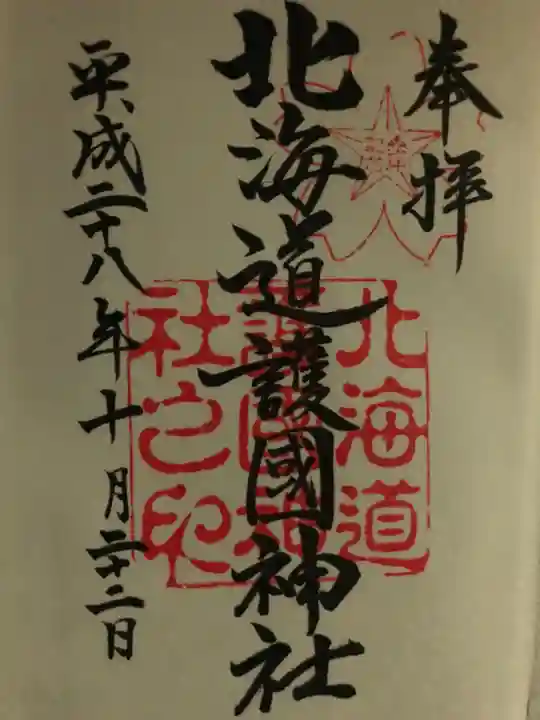 奉拝
護
北海道護國神社
北海道
護國神
社之印
平成二十八年十月二十二日